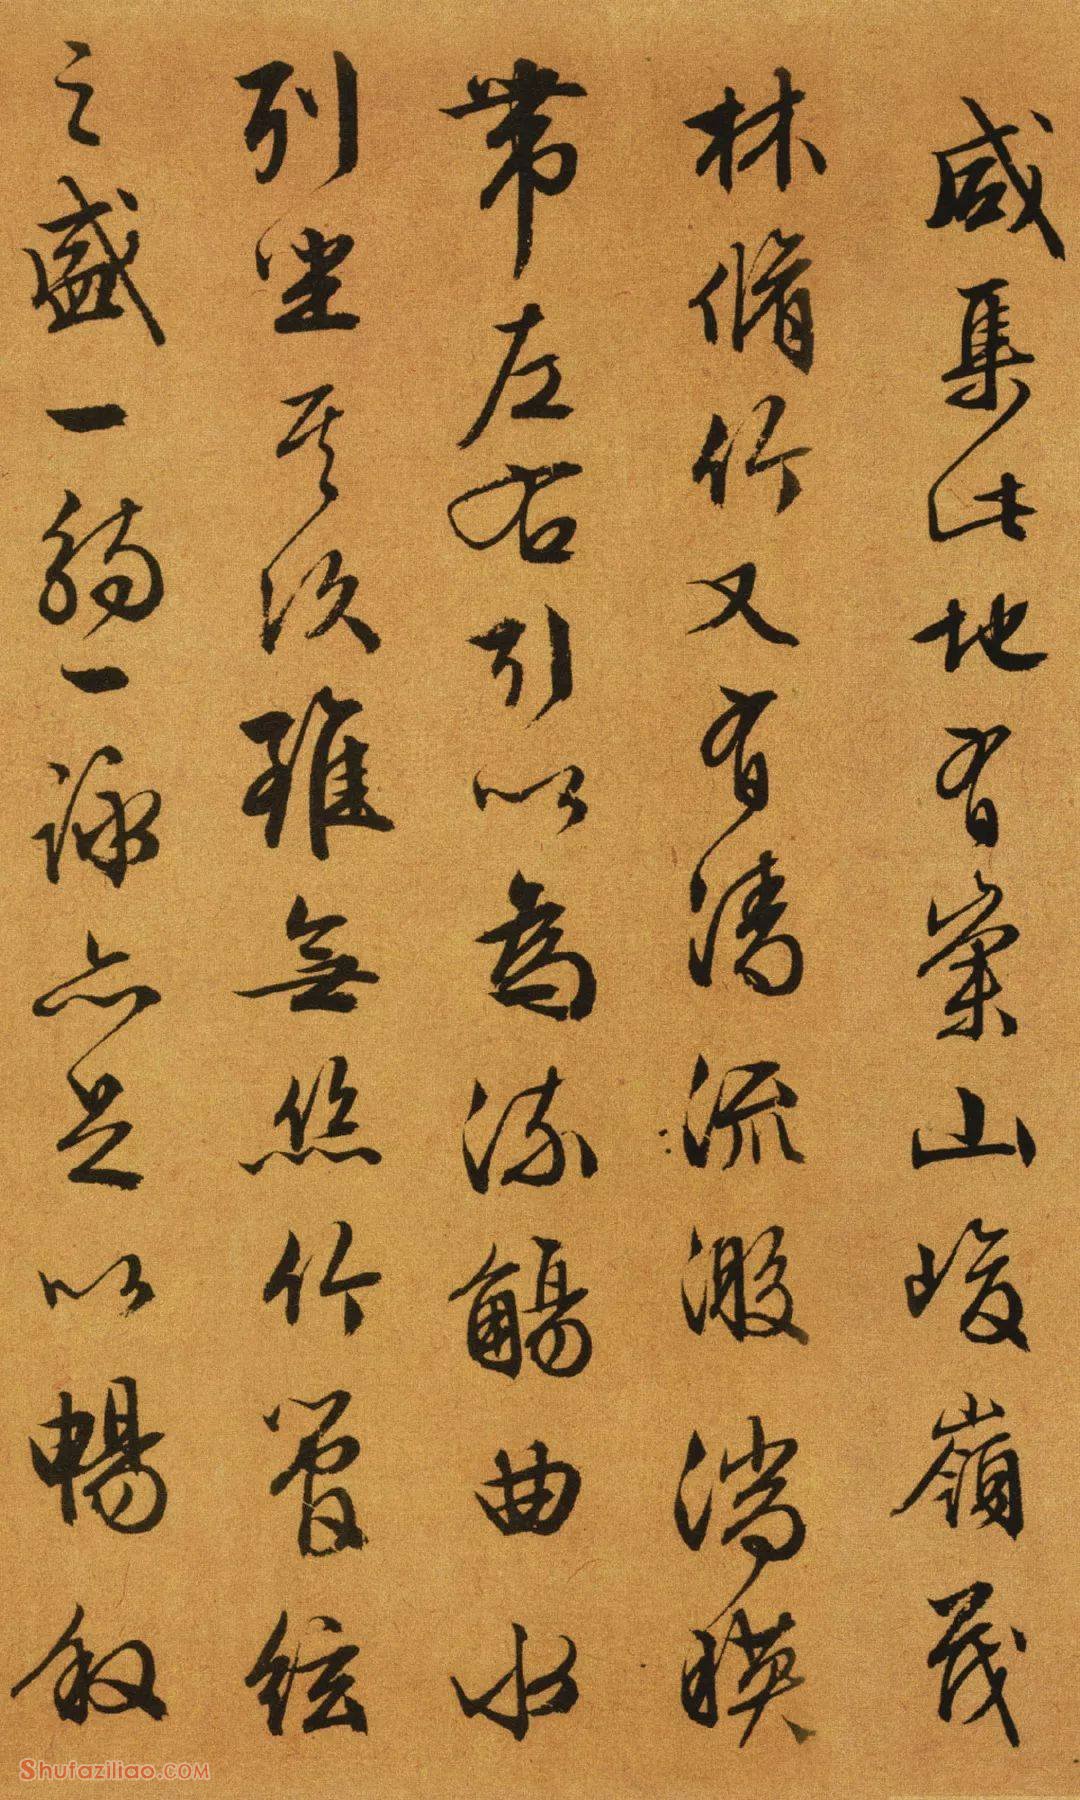 咸集此地有崇山峻嶺茂
林脩竹又有清流激湍暎
帶左右引以為流觴曲水
列坐其次雖無絲竹管絃
之盛一觴一詠亦足以暢敘
Shufaziliao.COM